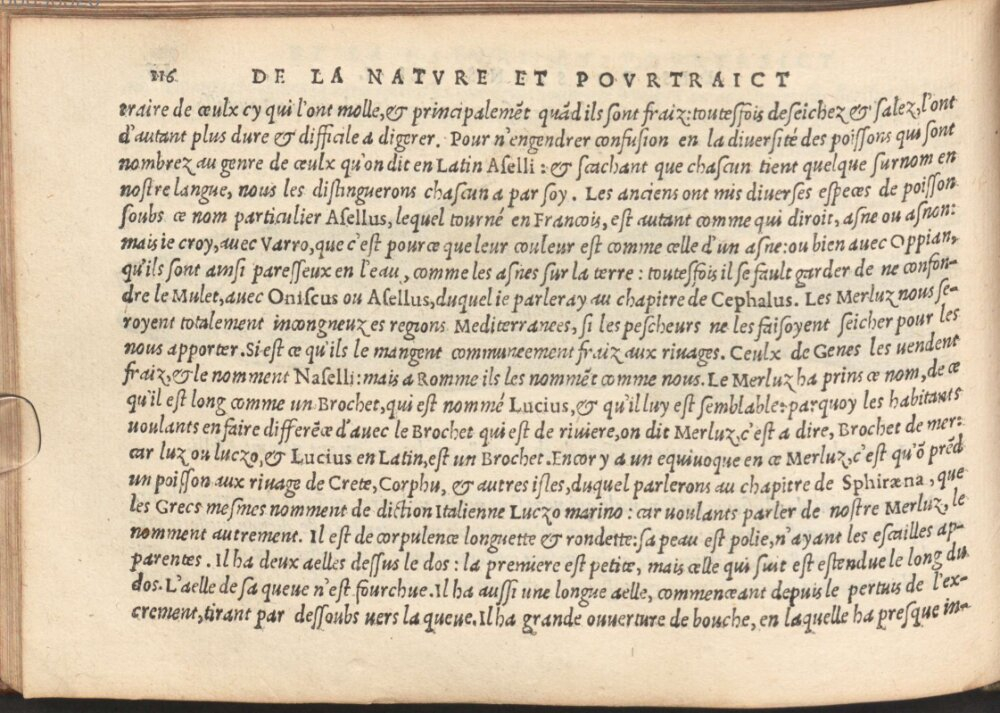 116. DE LA NATVRE ET POVRTRAICT
traire de ceulx cy qui l'ont molle, & principalemẽt quãd ils sont fraiz: toutesfois deseichez & salez, l'ont
d'autant plus dure & difficile a digerer. Pour n'engendrer confusion en la diversité des poissons qui sont
nombrez au genre de ceulx qu'on dit en Latin Aselli: & scachant que chascun tient quelque surnom en
nostre langue, nous les distinguerons chascun a par soy. Les anciens ont mis diverses especes de poisson
soubs ce nom particulier Asellus, lequel tourné en Francois, est autant comme qui diroit, asne ou asnon:
mais ie croy, avec Varro, que c'est pource que leur couleur est comme celle d'un asne: ou bien avec Oppian,
qu'ils sont ainsi paresseux en l'eau, comme les asnes sur la terre: toutesfois il se fault garder de ne confon-
dre le Mulet, avec Oniscus ou Asellus, duquel ie parleray au chapitre de Cephalus. Les Merluz nous se-
royent totalement incongneuz es regions Mediterranees, si les pescheurs ne les faisoyent seicher pour les
nous apporter. Si est ce qu'ils le mangent communeement fraiz aux rivages. Ceulx de Genes les vendent
fraiz, & le nomment Naselli: mais a Romme ils les nommẽt comme nous. Le Merluz ha prins ce nom, de ce
qu'il est long comme un Brochet, qui est nommé Lucius, & qu'il luy est semblable: parquoy les habitants
voulants en faire differẽce d'avec le Brochet qui est de riviere, on dit Merluz, c'est a dire, Brochet de mer:
car luz ou luczo, & Lucius en Latin, est un Brochet. Encor y a un equivoque en ce Merluz, c'est qu'õ prẽd
un poisson aux rivage de Crete, Corphu, & autres isles, duquel parlerons au chapitre de Sphiræna, que
les Grecs mesmes nomment de diction Italienne Luczo marino: car voulants parler de nostre Merluz, le
nomment autrement. Il est de corpulence longuette & rondette: sa peau est polie, n'ayant les escailles ap-
parentes. Il ha deux aelles dessus le dos: la premiere est petite, mais celle qui suit est estendue le long du
dos. L'aelle de sa queue n'est fourchue. Il ha aussi une longue aelle, commenceant depuis le pertuis de l'ex-
crement, tirant par dessoubs vers la queue. Il ha grande ouverture de bouche, en laquelle ha presque in-